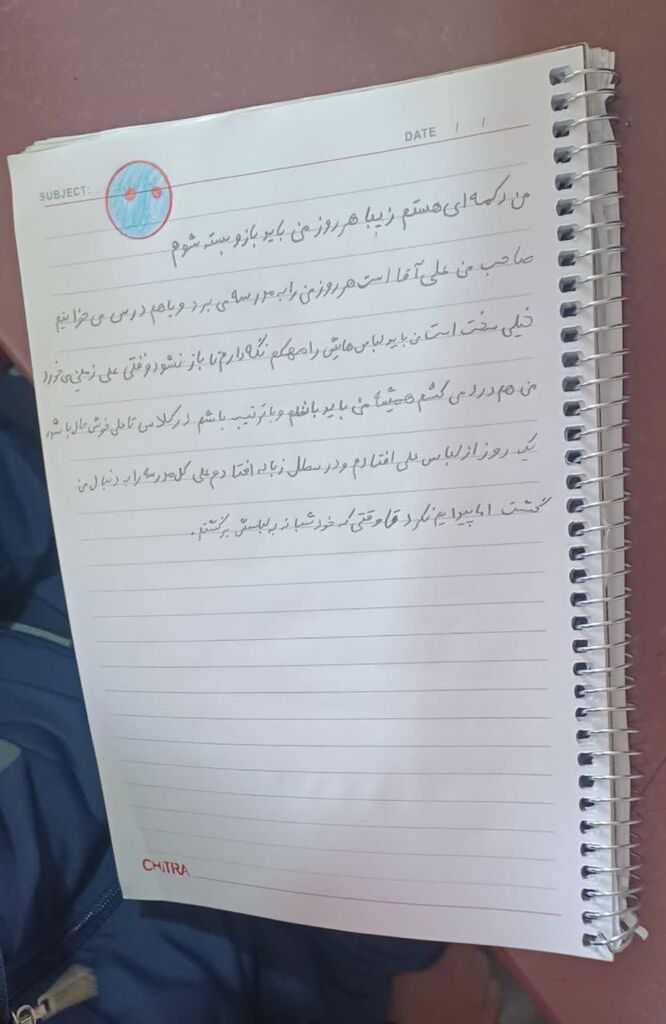 DATE / /
SUBJECT:
من دکمه ای هستم زیبا هر روز من باید باز و بسته شوم
صاحب من علی آقا است هر روز من را به مدرسه می برد و باهم درس می خوانیم
خیلی سخت است من باید لباس هایش را مهکم نگه دارم تا باز نشود وقتی علی زمین می خورد
من هم درد می کشم همیشه من باید بانظم و با ترتیب باشم در کلاس تا علی خوش حال باشد
یک روز از لباس علی افتادم و در سطل زباله افتادم علی کل مدرسه را به دنبال من
گشت اما پیدایم نکرد تا وقتی که خود شبانه به لباسش برگشتم.
CHITRA